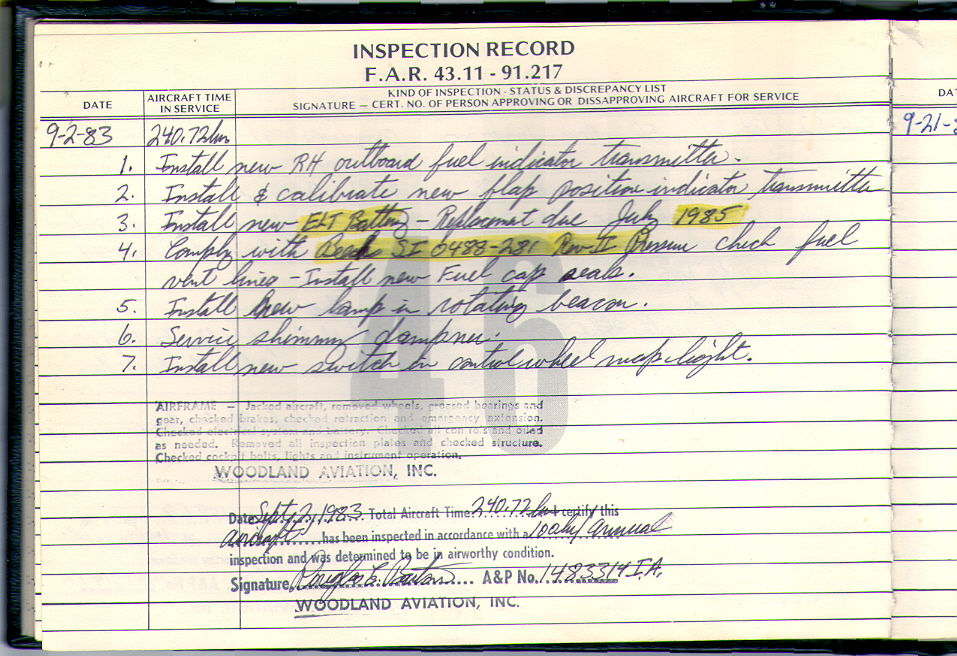 INSPECTION RECORD
F.A.R. 43.11 - 91.217
DATE
AIRCRAFT TIME
IN SERVICE
KIND OF INSPECTION - STATUS & DISCREPANCY LIST
SIGNATURE — CERT. NO. OF PERSON APPROVING OR DISSAPPROVING AIRCRAFT FOR SERVICE
DAT
9-2-83 240.72 hrs
9-21-8
1. Install new RH outboard fuel indicator transmitter.
2. Install & calibrate new flap position indicator transmitter
3. Install new ELT Battery - Replacement due July 1985
4. Comply with Beech SI 0488-281 Rev II Pressure check fuel
vent lines - Install new Fuel cap seals.
5. Install new lamp in rotating beacon.
6. Service shimmy dampner.
7. Install new switch in control wheel map light.
46
AIRFRAME — Jacked aircraft, removed wheels, greased bearings and
gear, checked brakes, checked retraction and emergency extension.
Checked and oiled
as needed. Removed all inspection plates and checked structure.
Checked cockpit belts, lights and instrument operation.
WOODLAND AVIATION, INC.
Date Sept 2, 1983 Total Aircraft Time 240.72 hrs I certify this
aircraft has been inspected in accordance with a 100hr/annual
inspection and was determined to be in airworthy condition.
Signature Douglas A&P No. 1483314 I.A.
WOODLAND AVIATION, INC.